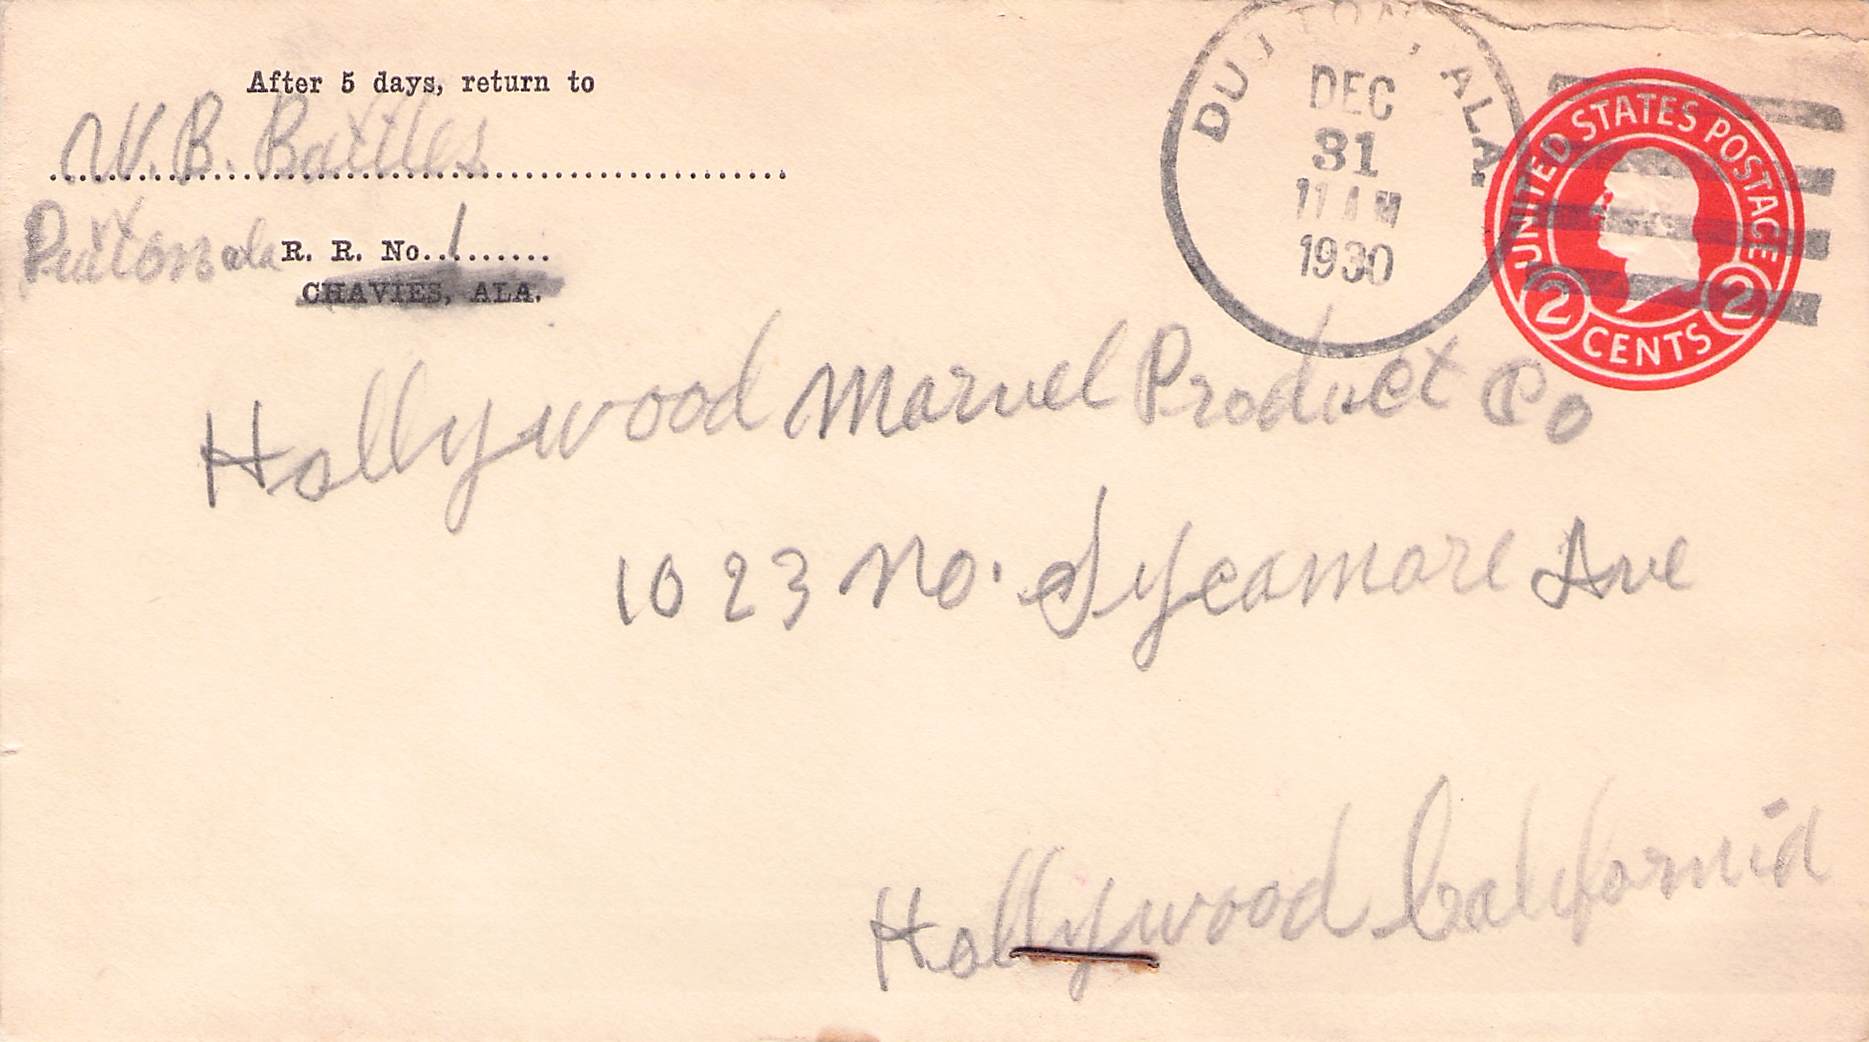 After 5 days, return to
W. B. Battles
Dutton ala R. R. No. 1
CHAVIES, ALA.
DUTTON, ALA.
DEC
31
11 AM
1930
UNITED STATES POSTAGE
2 CENTS 2
Hollywood Marvel Product Co
1023 No. Sycamore Ave
Hollywood California